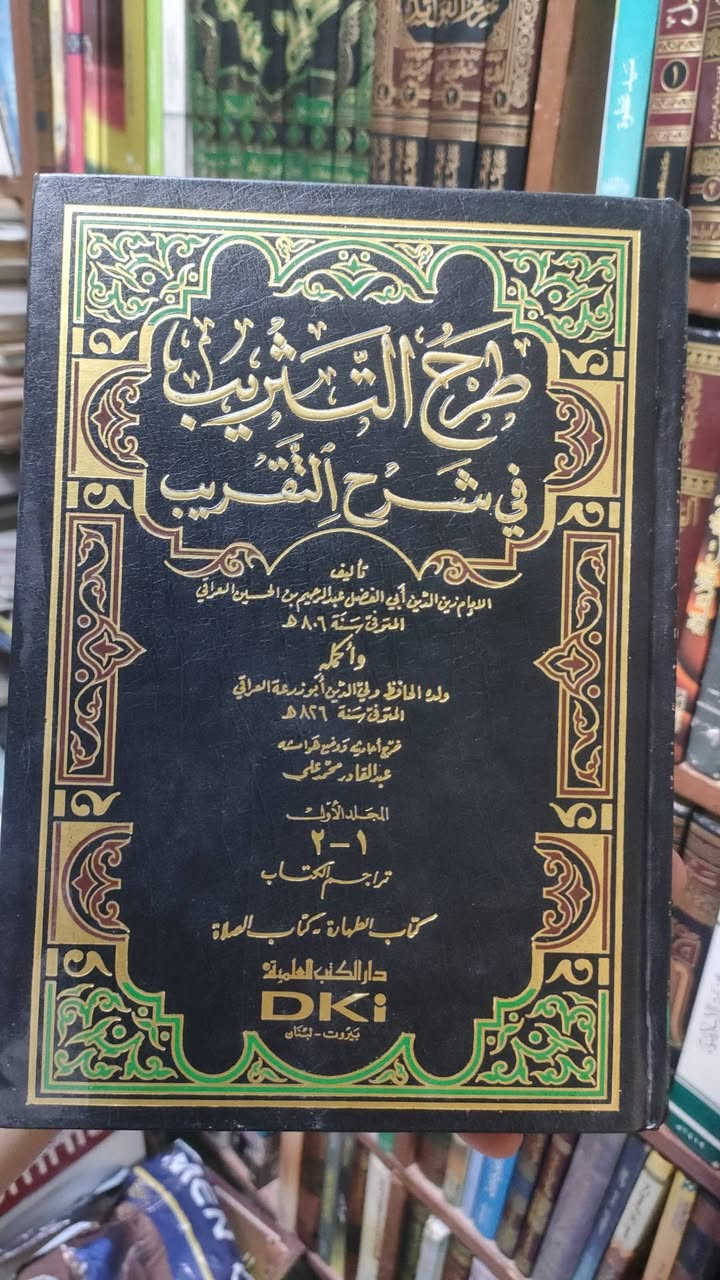 طرح التثريب
في شرح التقريب
تأليف
الإمام زين الدين أبي الفضل عبد الرحيم بن الحسين العراقي
المتوفى سنة ٨٠٦ هـ
وأكمله
ولده الحافظ ولي الدين أبو زرعة العراقي
المتوفى سنة ٨٢٦ هـ
خرج أحاديثه ووضع هوامشه
عبد القادر محمد علي
المجلد الأول
١-٢
تراجم الكتاب
كتاب الطهارة - كتاب الصلاة
دار الكتب العلمية
DKi
بيروت - لبنان
سيد عطوة
١